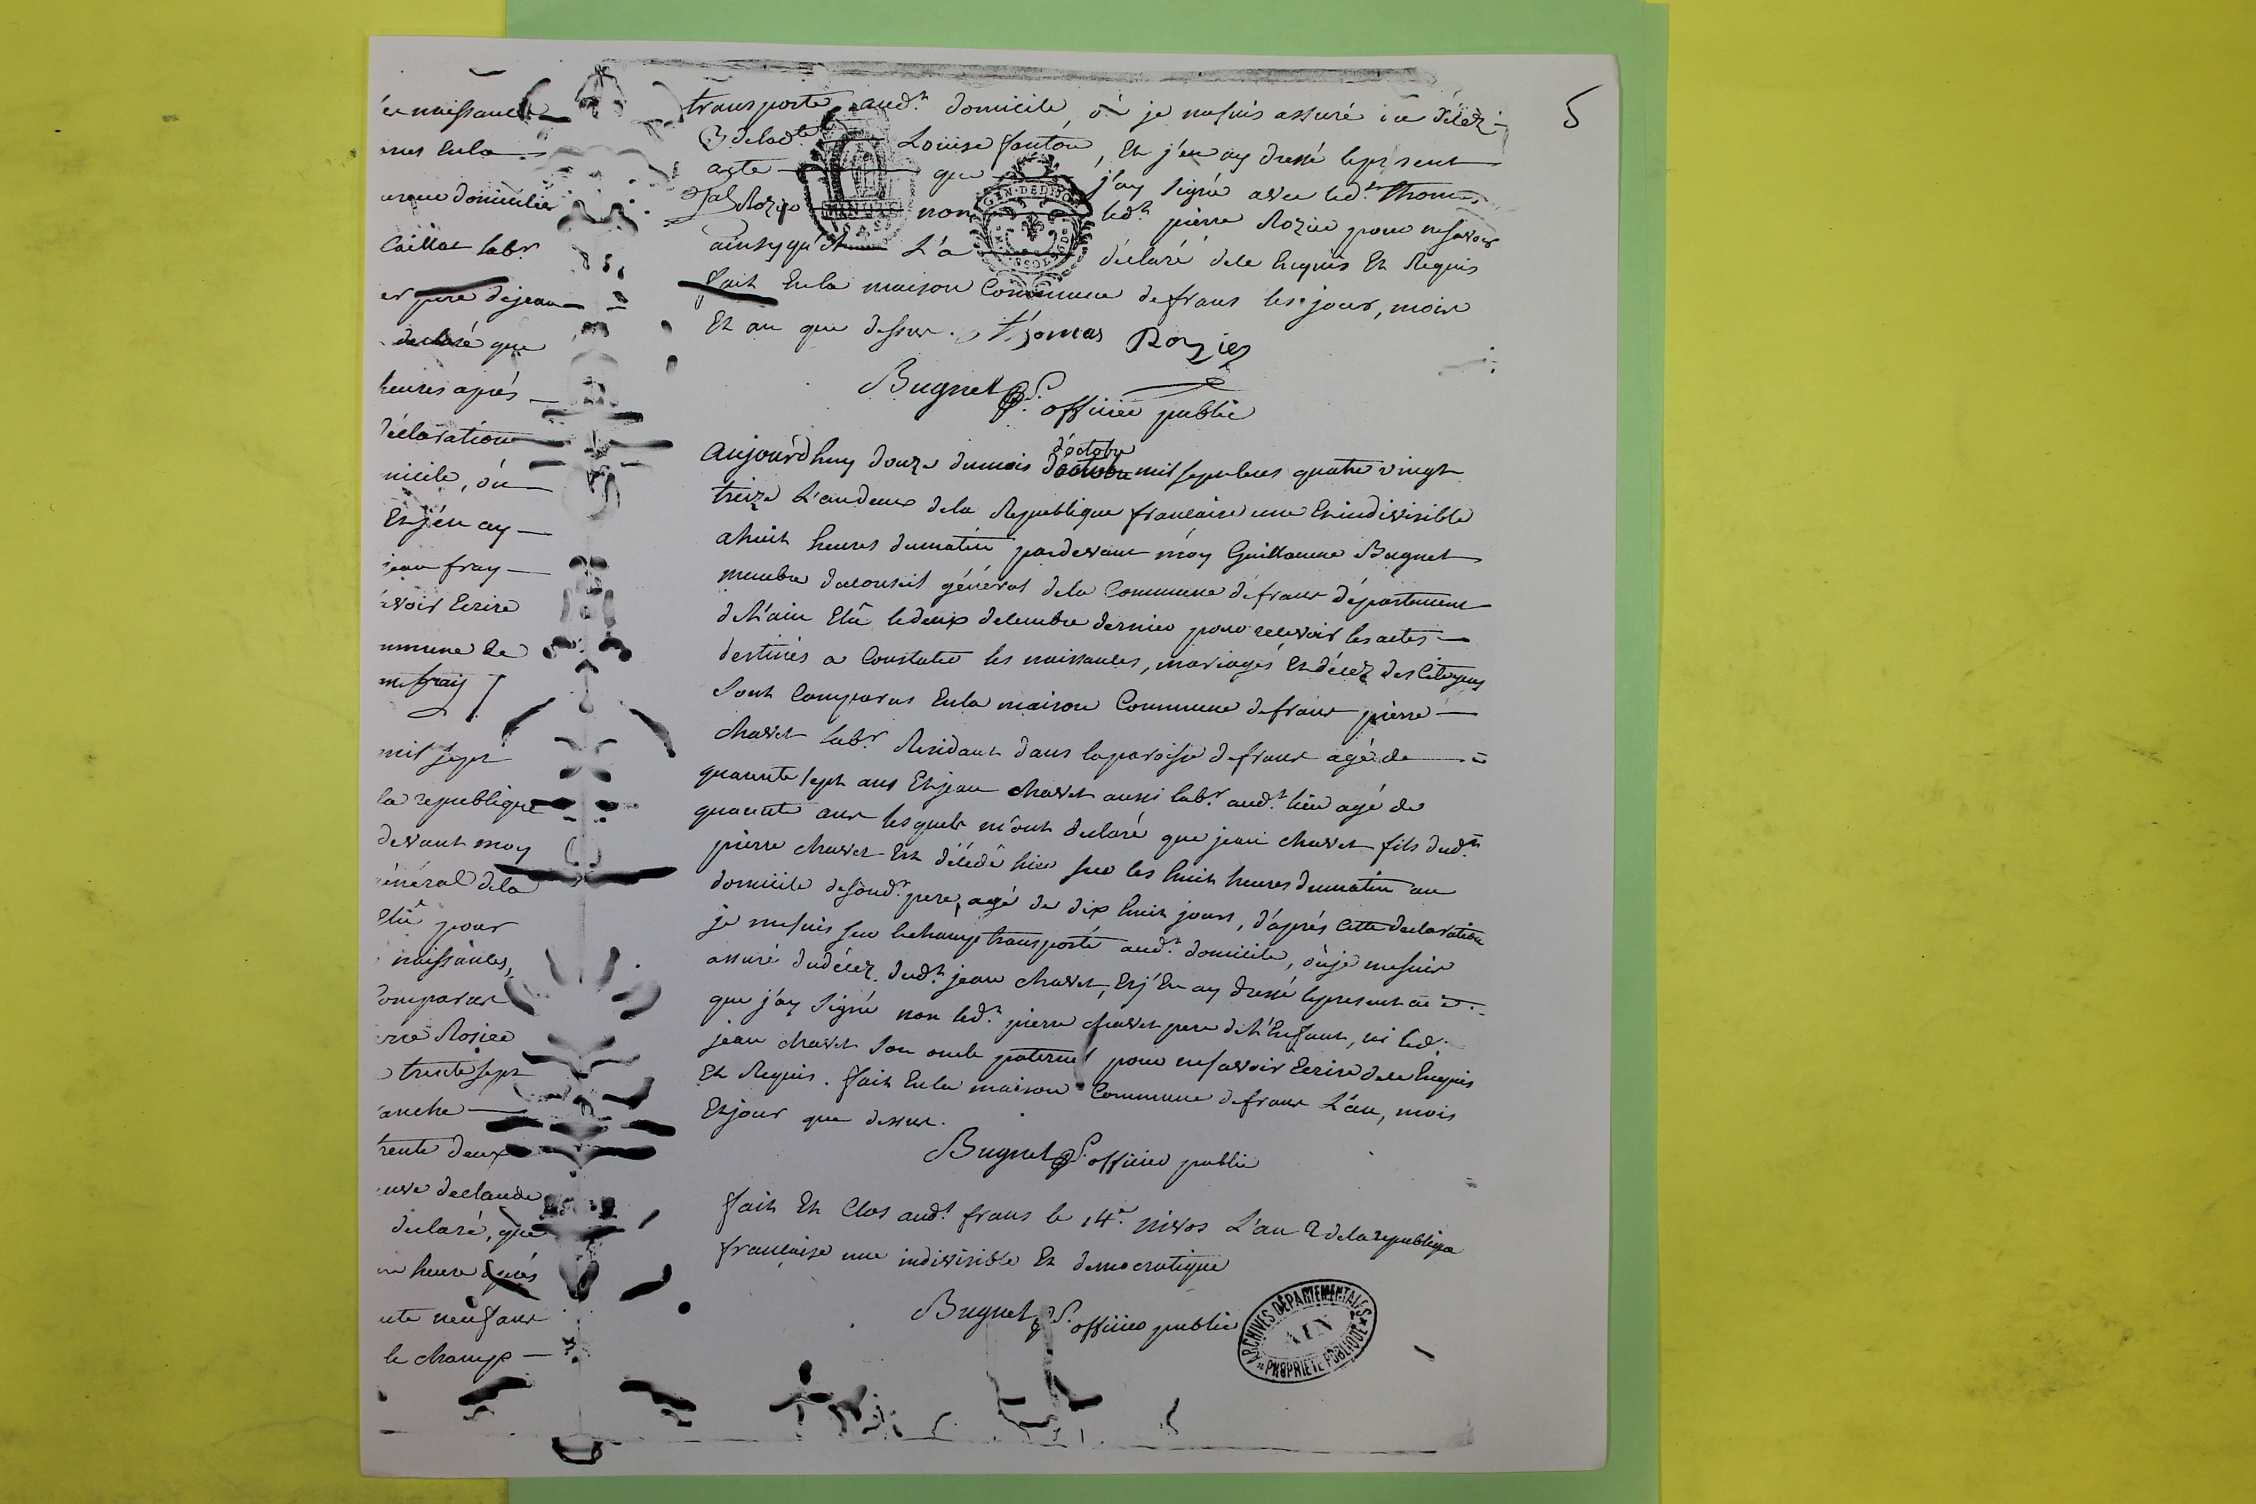 ce naissance
mes Enla
commune domicilié
Caillat labr
et pere de jean
declaré que
heures après
déclaration
micile, où
Et j'en ay
jean fray
avoir Ecrire
mmune de
mefray
mil sept
la republique
devant moy
général dela
Elû pour
naissances,
Comparus
erre Rosier
trente sept
anche
trente deux
uve declaude
declaré, que
une heure après
nte neuf ans
le champ
5
transporté audt. domicile, où je mesuis assuré du décéz
deladte Louise fanton, Et j'en ay dressé leprésent
acte que j'ay signé avec ledt. Thomas
Rozier non ledt. pierre Rozier pour nesavoir
ainsy qu'il L'a déclaré dele Enquis Et Requis
fait Enla maison Commune defrans les jour, mois
Et an que dessus. Thomas Rozier
MINUTE
GEN. DE DIJON
Bugnet P. officier public
Aujourd'huy douze dumois d'octobre d'octobre mil septcens quatre vingt
treize L'andeux dela Republique francaise une Etindivisible
ahuit heures dumatin pardevant moy Guillaume Bugnet
membre duconseil général dela Commune de frans département
deL'ain Elû ledeux decembre dernier pour recevoir lesactes
destinés a Constater les naissances, mariages Et décéz des Citoyens
sont Comparus Enla maison Commune defrans pierre
chavet labr. Residant dans laparoisse defrans agé de
quarante sept ans Et jean chavet aussi labr. audt. lieu agé de
quarante ans lesquels m'ont declaré que jean chavet fils dudt.
pierre chavet Est décédé hier sur les huit heures dumatin au
domicile desondt. pere, agé de dix huit jours, d'après Cette declaration
je mesuis sur lechamp transporté audt. domicile, où je mesuis
assuré dudécéz dudt. jean chavet, Et j'En ay dressé lepresent acte
que j'ay signé non ledt. pierre chavet pere deL'Enfant, ni led.
jean chavet son oncle paternel pour nesavoir Ecrire dele Enquis
Et Requis. fait Enla maison Commune defrans L'an, mois
Et jour que dessus.
Bugnet P. officier public
fait Et Clos audt. frans le 14e. nivos L'an 2 dela republique
française une indivisible Et democratique
Bugnet P. officier public
ARCHIVES DÉPARTEMENTALES
AIN
PROPRIÉTÉ PUBLIQUE